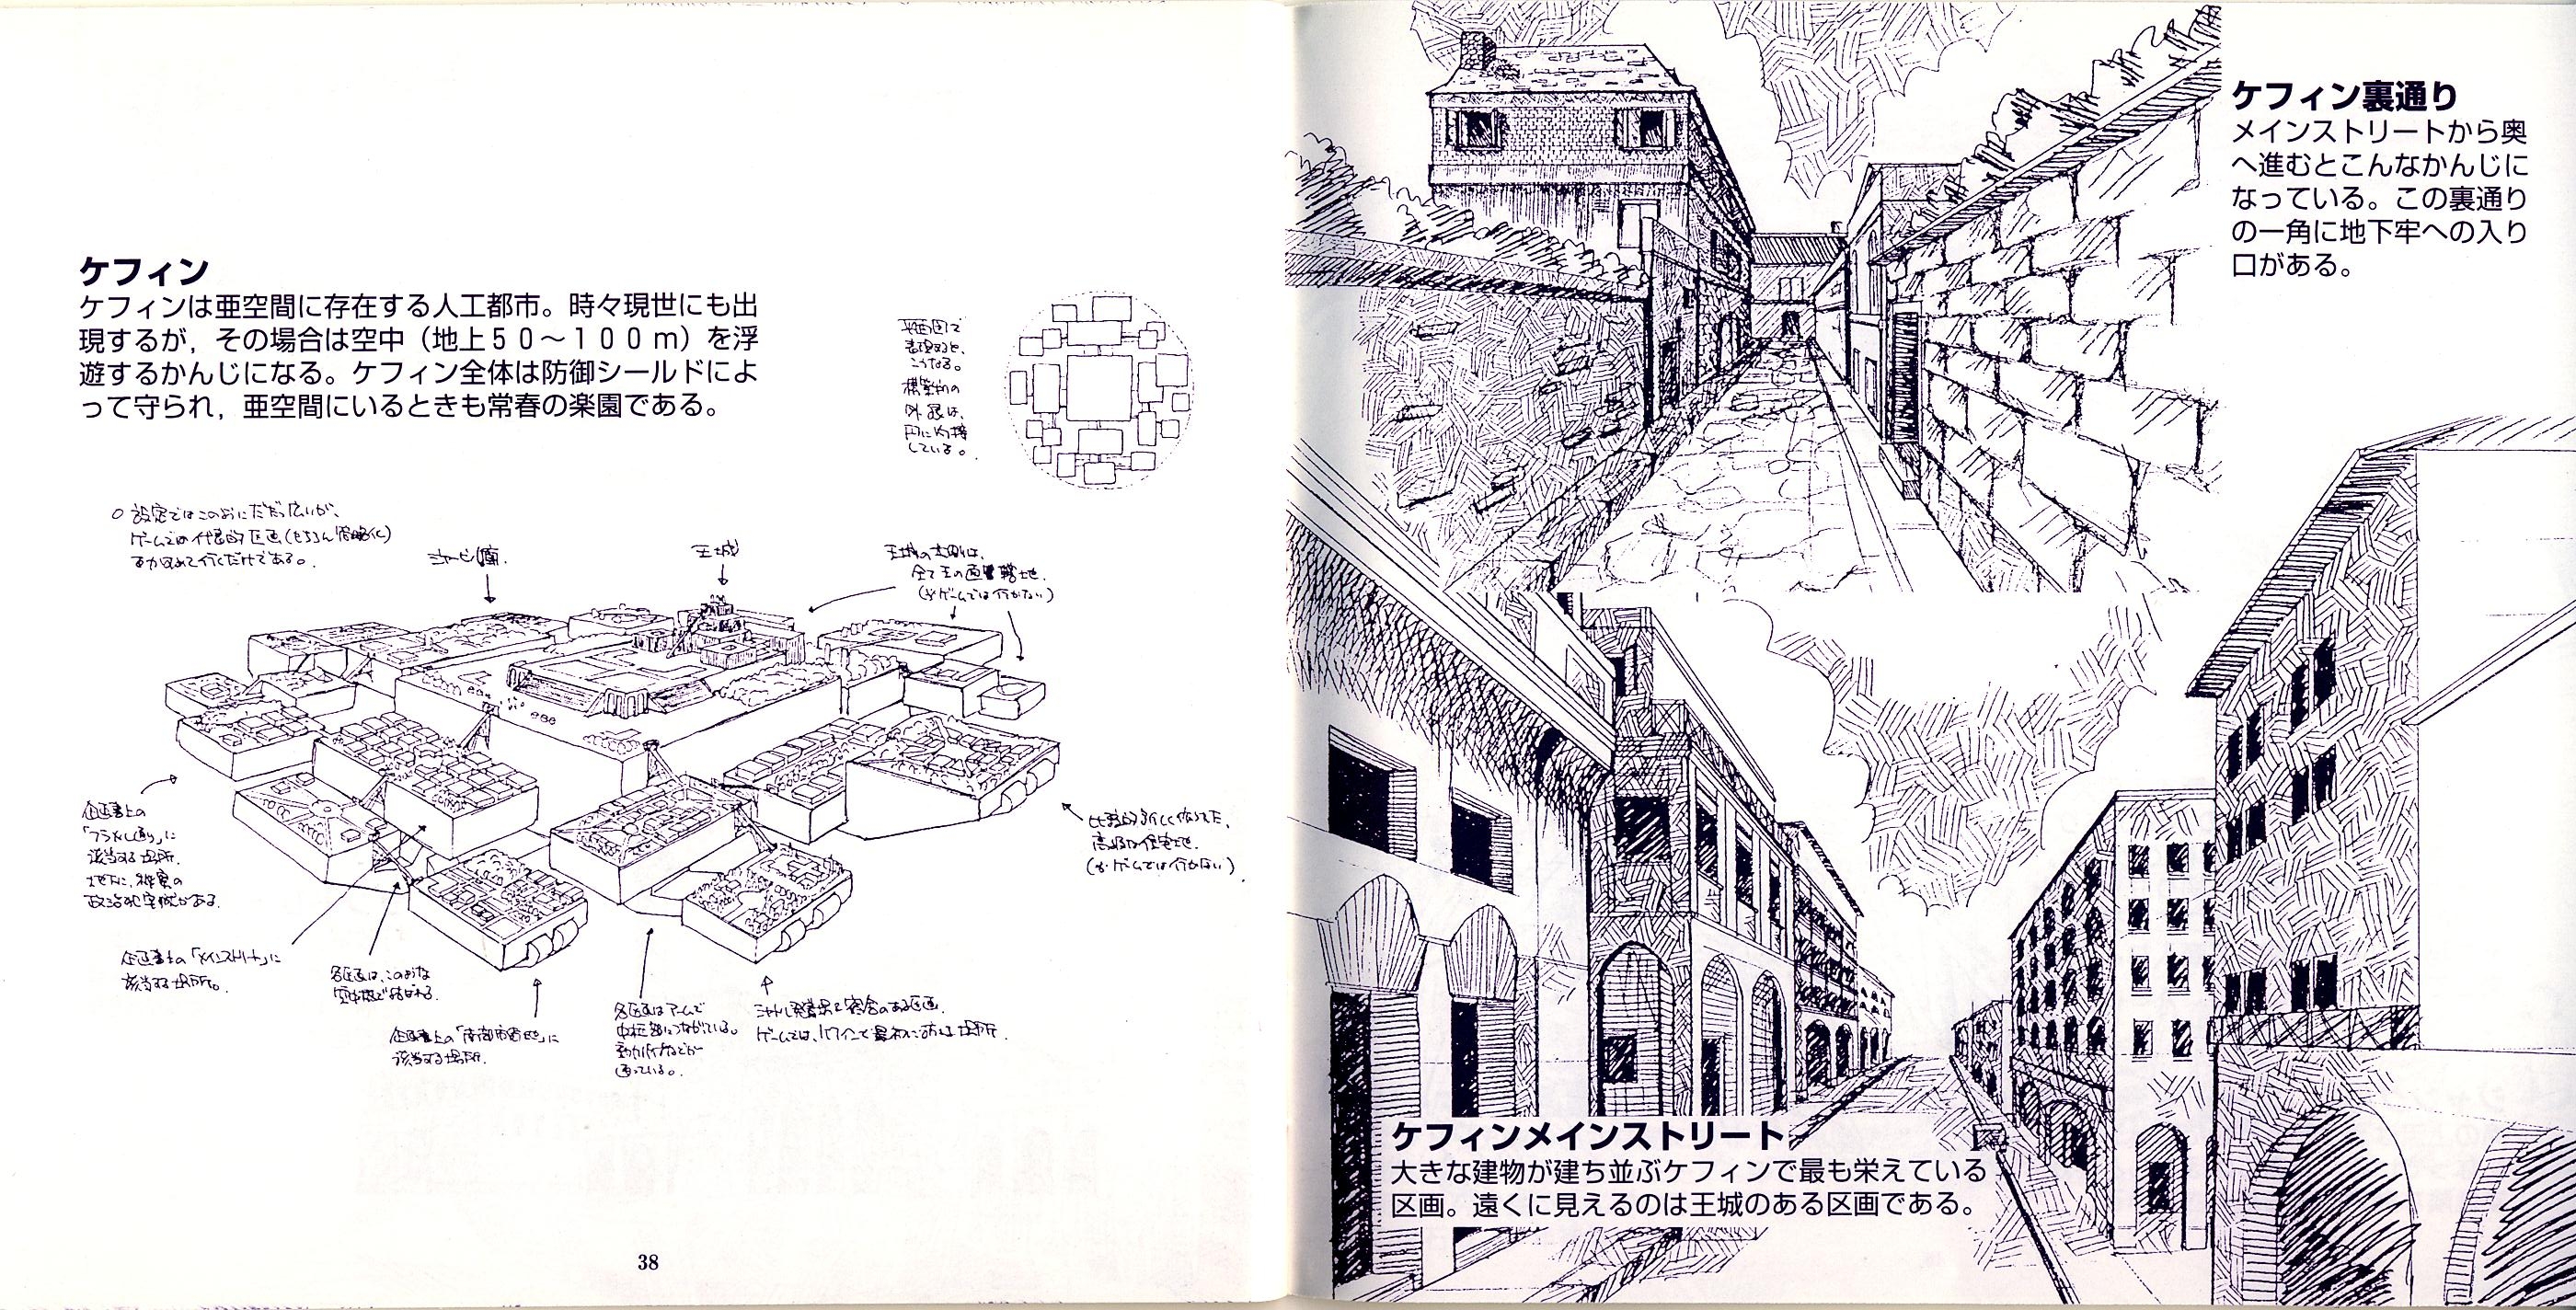 ケフィン
ケフィンは亜空間に存在する人工都市。時々現世にも出
現するが，その場合は空中（地上５０～１００ｍ）を浮
遊するかんじになる。ケフィン全体は防御シールドによ
って守られ，亜空間にいるときも常春の楽園である。
平面図で
表現すると、
こうなる。
構築物の
外
円に内接
している。
○ 設定ではこのようにだだっ広いが、
ゲームでは代表的区画(もちろん簡略化)
王城
全て王の直轄地。
(※ゲームでは行かない)
企画書上の
に
該当する場所。
地下に、秘密の
政治犯牢獄がある。
高級な住宅地。
(※ゲームでは行かない)
企画書上の「メインストリート」に
該当する場所。
各区画は、このような
で結ばれる。
企画書上の「南部市街地」に
該当する場所。
各区画はアームで
中枢部につながっている。
動力パイプなどが
通っている。
のある区画。
ゲームでは、ケフィンで最初に訪れる場所。
38
ケフィン裏通り
メインストリートから奥
へ進むとこんなかんじに
なっている。この裏通り
の一角に地下牢への入り
口がある。
ケフィンメインストリート
大きな建物が建ち並ぶケフィンで最も栄えている
区画。遠くに見えるのは王城のある区画である。